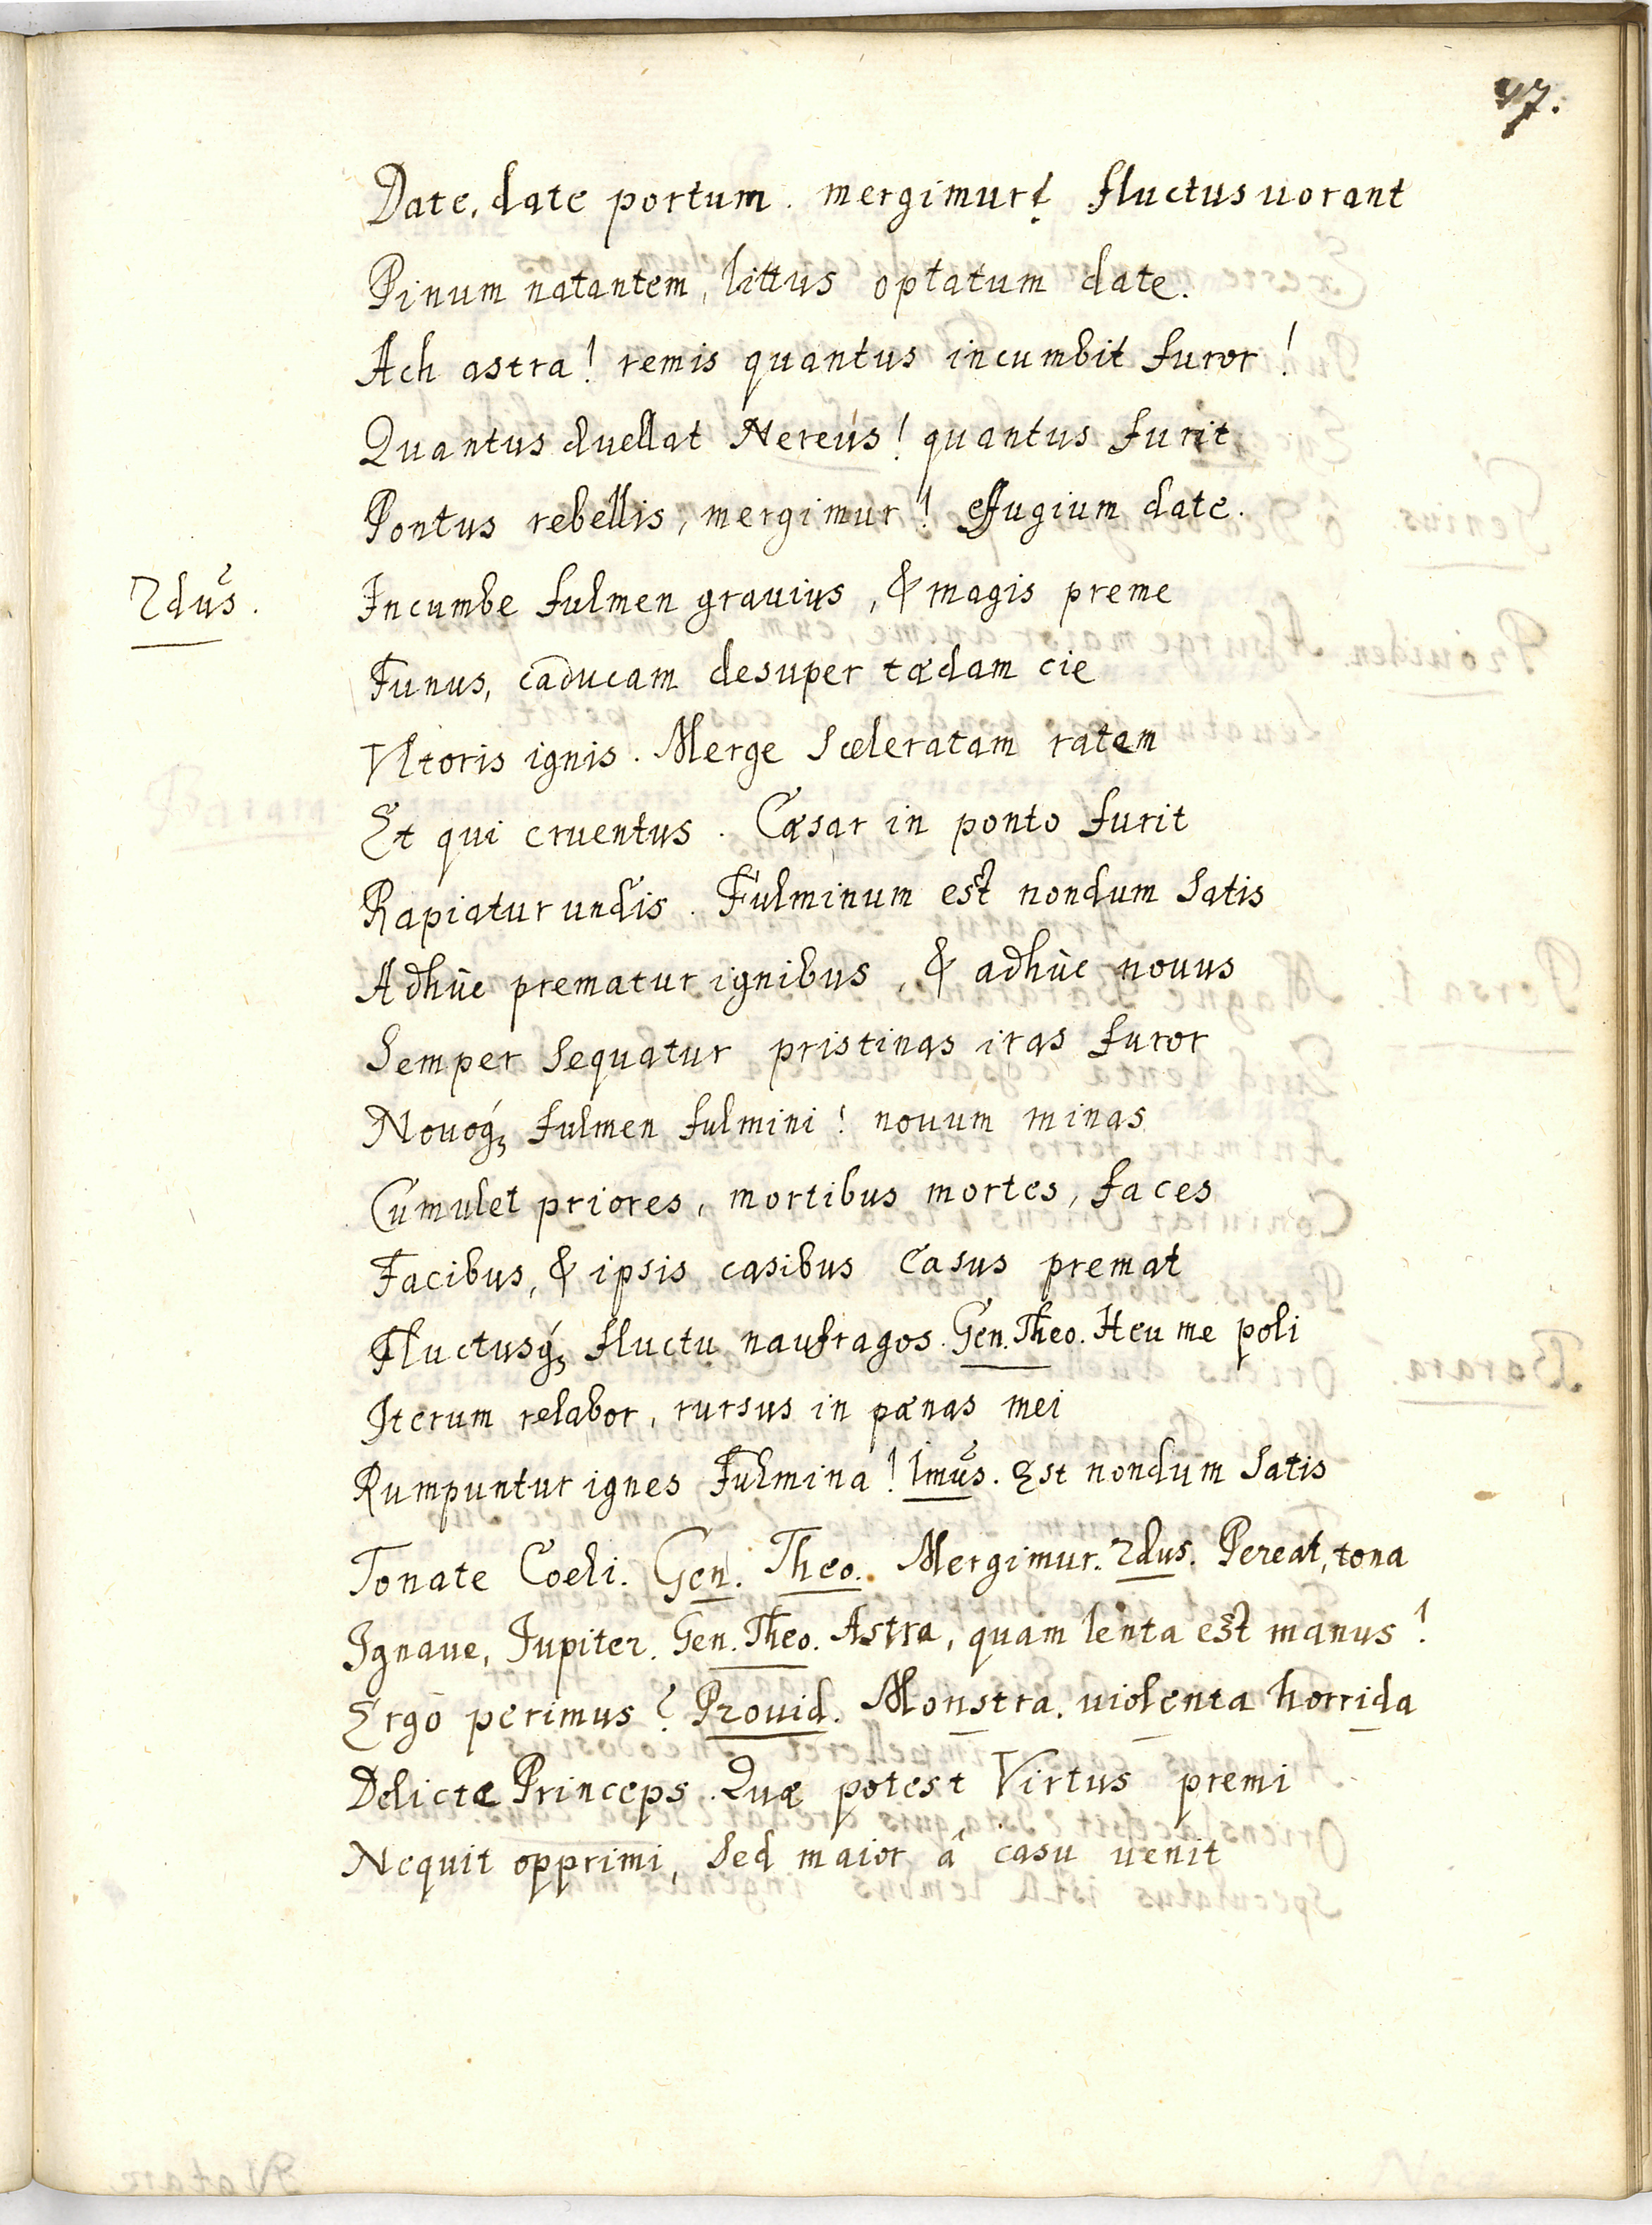 47.
Date, date portum. mergimur! fluctus uorant
Pinum natantem, littus optatum date.
Ach astra! remis quantus incumbit furor!
Quantus duellat Nereus! quantus furit
Pontus rebellis, mergimur! effugium date.
2dus. Incumbe fulmen grauius, & magis preme
Funus, caducam desuper tædam cie
Vltoris ignis. Merge sceleratam ratem
Et qui cruentus. Cæsar in ponto furit
Rapiatur undis. Fulminum est nondum satis
Adhuc prematur ignibus, & adhuc nouus
Semper sequatur pristinas iras furor
Nouoq3 fulmen fulmini! nouum minas
Cumulet priores, mortibus mortes, faces
Facibus, & ipsis casibus Casus premat
Fluctusq3 fluctu naufragos. Gen. Theo. Heu me poli
Iterum relabor, rursus in pænas mei
Rumpuntur ignes Fulmina! 1mus. Est nondum satis
Tonate Coeli. Gen. Theo. Mergimur. 2dus. Pereat, tona
Ignaue, Iupiter. Gen. Theo. Astra, quam lenta est manus!
Ergo perimus? Prouid. Monstra. uiolenta horrida
Delictæ Princeps. Quæ potest Virtus premi
Nequit opprimi, sed maior â casu uenit